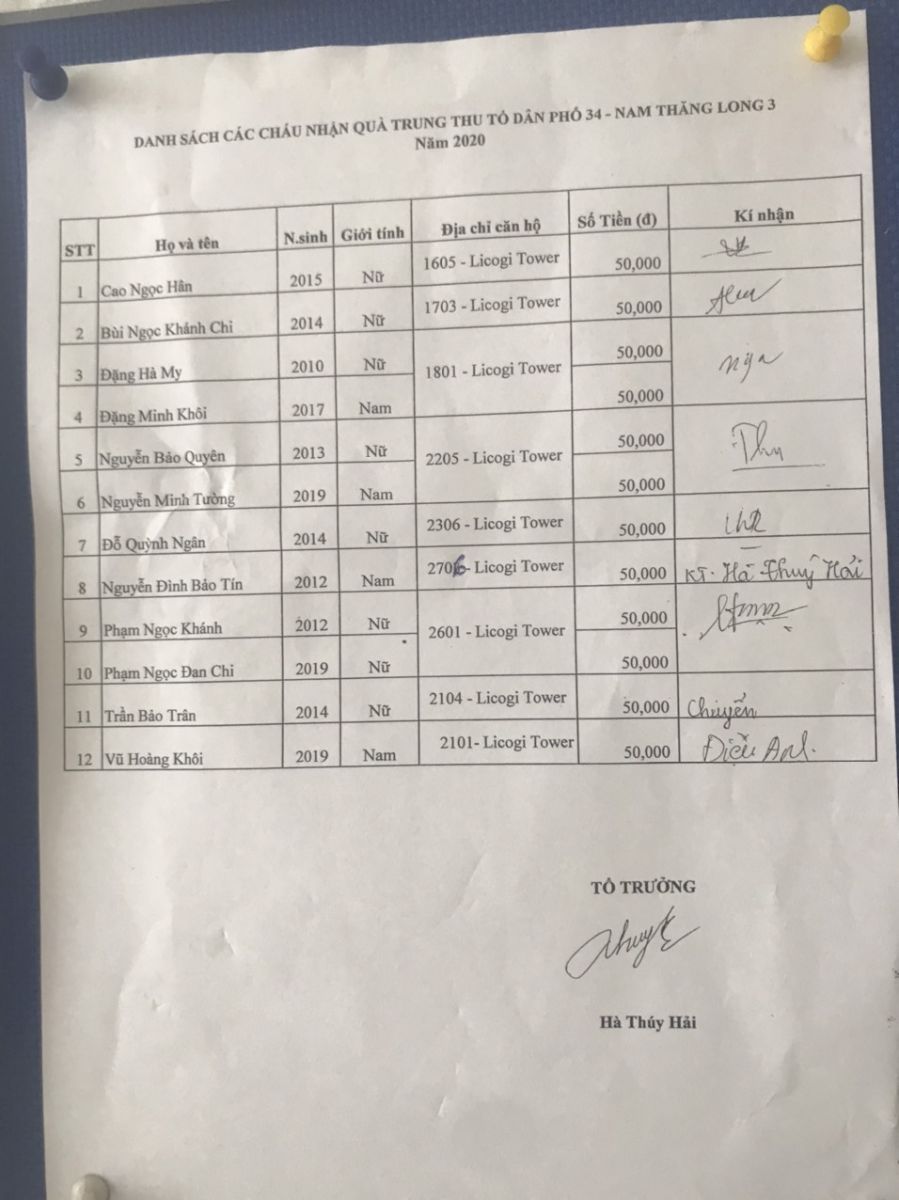 DANH SÁCH CÁC CHÁU NHẬN QUÀ TRUNG THU TỔ DÂN PHỐ 34 - NAM THĂNG LONG 3
Năm 2020
STT Họ và tên N.sinh Giới tính Địa chỉ căn hộ Số Tiền (đ) Kí nhận
1 Cao Ngọc Hân 2015 Nữ 1605 - Licogi Tower 50,000
2 Bùi Ngọc Khánh Chi 2014 Nữ 1703 - Licogi Tower 50,000
3 Đặng Hà My 2010 Nữ 1801 - Licogi Tower 50,000 Nga
4 Đặng Minh Khôi 2017 Nam 50,000
5 Nguyễn Bảo Quyên 2013 Nữ 2205 - Licogi Tower 50,000 Thu
6 Nguyễn Minh Tường 2019 Nam 50,000
7 Đỗ Quỳnh Ngân 2014 Nữ 2306 - Licogi Tower 50,000
8 Nguyễn Đình Bảo Tín 2012 Nam 2706 - Licogi Tower 50,000 KT. Hà Thuý Hải
9 Phạm Ngọc Khánh 2012 Nữ 2601 - Licogi Tower 50,000
10 Phạm Ngọc Đan Chi 2019 Nữ 50,000
11 Trần Bảo Trân 2014 Nữ 2104 - Licogi Tower 50,000 Chuyển
12 Vũ Hoàng Khôi 2019 Nam 2101- Licogi Tower 50,000 Diệu Anh.
TỔ TRƯỞNG
Hà Thúy Hải